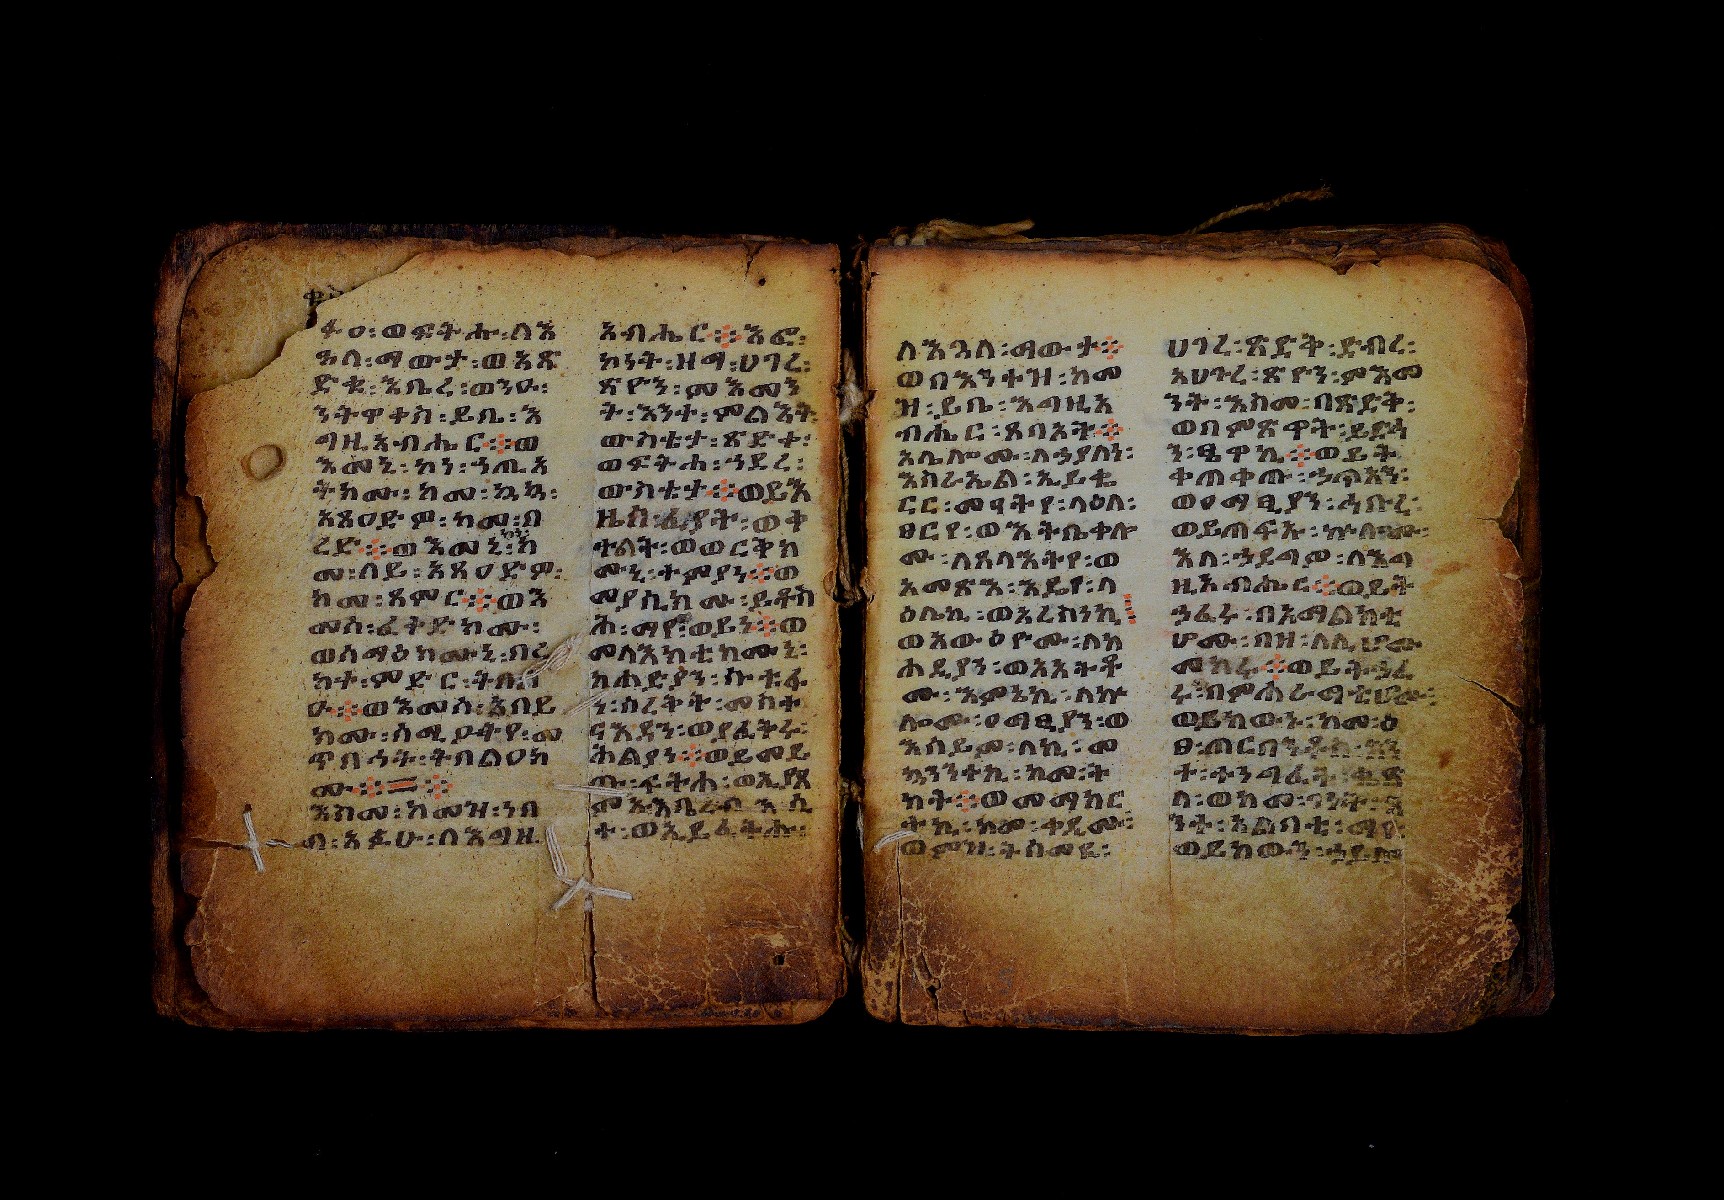 ፋዐ፡ወፍትሑ፡ለእ
ጓለ፡ማውታ፡ወአጽ
ድቁ፡እቤረ፡ወንዑ፡
ንትዋቀስ፡ይቤ፡እ
ግዚአብሔር፨ወ
እመኒ፡ኮነ፡ኀጢአ
ትክሙ፡ከመ፡ኳኳ፡
አጸዐድዎ፡ከመ፡በ
ረድ፨ወእመኒ፡ከ
መ፡ለይ፡አጸዐድዎ፡
ከመ፡ጸምር፨ወእ
መሰ፡ፈቀድክሙ፡
ወሰማዕክሙኒ፡በረ
ከተ፡ምድር፡ትበል
ዑ፨ወእመሰ፡አበይ
ክሙ፡ሰሚዖትየ፡መ
ጥባሕት፡ትበልዐክ
ሙ፨=፨
እስመ፡ከመዝ፡ነበ
በ፡አፉሁ፡ለእግዚ
አብሔር፨እፎ፡
ኮነት፡ዘማ፡ሀገረ፡
ጽዮን፡መእመን
ት፡እንተ፡ምልእት፡
ውስቴታ፡ጽድቀ፡
ወፍትሐ፡ኀደረ፡
ውስቴታ፨ወይእ
ዜሰ፡ፈያት፡ወቀ
ተልት፡ወወርቅክ
ሙኒ፡ትሚያን፨ወ
መያሲክሙ፡ይቶስ
ሑ፡ማየ፡ወይነ፨ወ
መላእክቲክሙኒ፡
ክሐድያን፡ሱቱፋ
ን፡ሰረቅት፡መስተ
ናእዳን፡ወያፈቅሩ፡
ሕልያነ፨ወይመይ
ጡ፡ፍትሐ፡ወኢያጸ
ት፡ወኢይፈትሑ፡
ለእጓለ፡ማውታ፨
ወበእንተዝ፡ከመ
ዝ፡ይቤ፡እግዚአ
ብሔር፡ጸባኦት፨
አሌሎሙ፡ለኃያላነ፡
እስራኤል፡ኢይቁ
ርር፡መዓትየ፡ላዕለ፡
ፀርየ፡ወእትቤቀሎ
ሙ፡ለጸላእትየ፡ወ
አመጽእ፡እዴየ፡ላ
ዕሌኪ፡ወአረስነኪ፡
ወአውዕዮሙ፡ለከ
ሐድያን፡ወአአትቶ
ሙ፡እምኔኪ፡ለኵ
ሎሙ፡ዐማፂያን፡ወ
እሰይመ፡ለኪ፡መ
ኳንንተኪ፡ከመ፡ት
ካት፨ወመማክር
ትኪ፡ከመ፡ቀዲሙ፡
ወምዝ፡ትሰመዪ፡
ሀገረ፡ጽድቅ፡ድብረ፡
እሀገረ፡ጽዮን፡ምእመ
ንት፡እስመ፡በጽድቅ፡
ወበምጽዋት፡ይድኅ
ን፡ፄዋኪ፨ወይት
ቀጠቀጡ፡ኃጥአን፡
ወዐማፂያን፡ኅቡረ፡
ወይጠፍኡ፡ኵሎሙ፡
እለ፡ኀደግዎ፡ለእግ
ዚአብሔር፨ወይት
ኃፈሩ፡በአማልክቲ
ሆሙ፡በዘ፡ለሊሆሙ፡
መከሩ፨ወይትኃፈ
ሩ፡በምሕራማቲሆሙ፡
ወይከውኑ፡ከመ፡ዕ
ፀ፡ጠርቤንቶስ፡እን
ተ፡ተንገፈት፡ቈጽ
ላ፡ወከመ፡ገነት፡እ
ንተ፡አልባቲ፡ማየ፡
ወይከውን፡